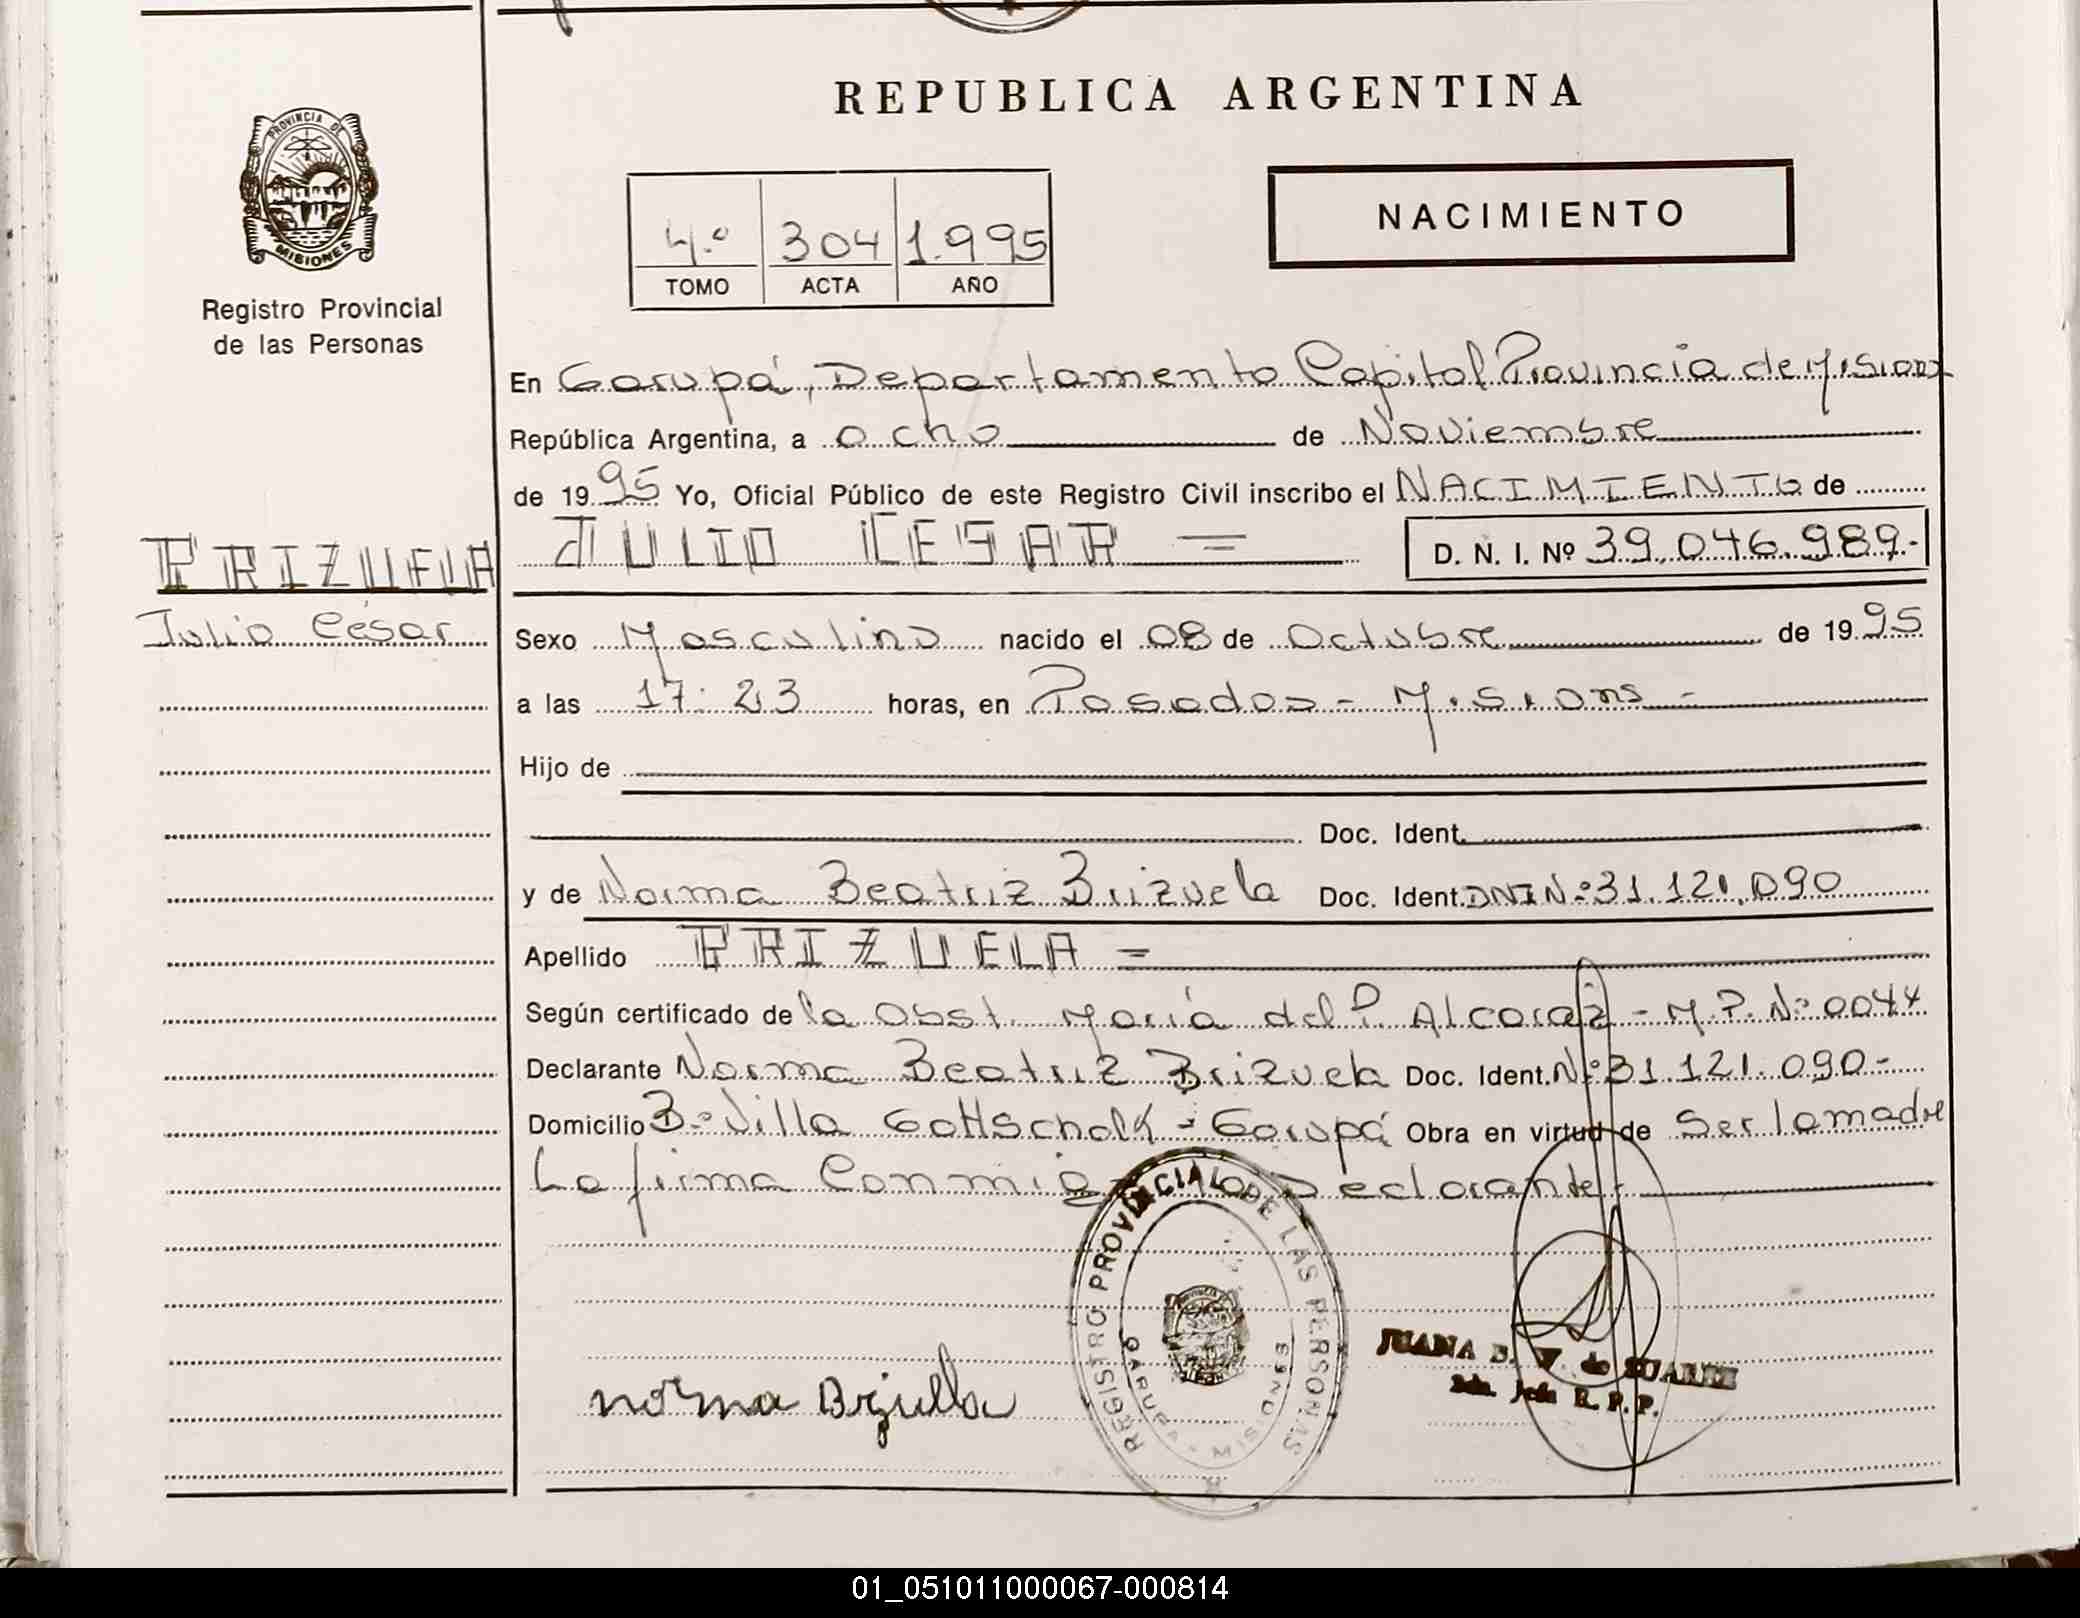 REPUBLICA ARGENTINA
PROVINCIA DE
MISIONES
Registro Provincial
de las Personas
4.º 304 1.995
TOMO ACTA AÑO
NACIMIENTO
En Garupá, Departamento Capital Provincia de Misiones
República Argentina, a ocho de Noviembre
de 1995 Yo, Oficial Público de este Registro Civil inscribo el NACIMIENTO de
BRIZUELA JULIO CESAR = D. N. I. Nº 39.046.989.-
Julio César
Sexo Masculino nacido el 08 de Octubre de 1995
a las 17:23 horas, en Posadas - Misiones -
Hijo de
Doc. Ident.
y de Norma Beatriz Brizuela Doc. Ident. DNI Nº 31.121.090
Apellido BRIZUELA =
Según certificado de la Obst. María del P. Alcaraz - M.P. Nº 0044
Declarante Norma Beatriz Brizuela Doc. Ident. Nº 31.121.090-
Domicilio Bº Villa Gottschalk - Garupá Obra en virtud de Ser la madre
La firma Conmigo la Declarante.-
REGISTRO PROVINCIAL DE LAS PERSONAS
GARUPA - MISIONES
norma Brizuela
JUANA B. V. de SUAREZ
2da. Jefa R. P. P.
01_051011000067-000814